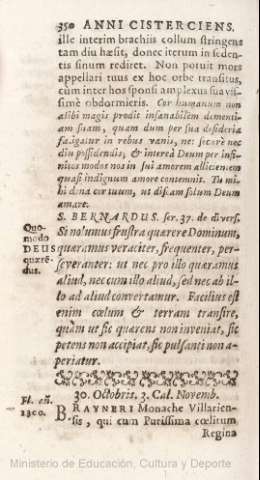 350 ANNI CISTERCIENS.
ille interim brachiis collum stringens
tam diu hæsit, donec iterum in seden-
tis sinum rediret. Non potuit mors
appellari tuus ex hoc orbe transitus,
cùm inter hos sponsi amplexus suavis-
simè obdormieris. Cor humanum non
alibi magis prodit insanabilem dementi-
am suam, quam dum per sua desideria
fatigatur in rebus vanis, nec securè nec
diu possidendis, & intereà Deum per infi-
nitos modos nos in sui amorem allicientem
quasi indignum amore contemnit. Tu mi-
hi dona cor tuum, ut discam solum Deum
amare.
S. BERNARDUS. ser. 37. de divers.
Quo-
modo
DEUS
quærê-
dus.
Si nolumus frustra quærere Dominum,
quæramus veraciter, frequenter, per-
severanter: ut nec pro illo quæramus
aliud, nec cum illo aliud, sed nec ab il-
lo ad aliud convertamur. Facilius est
enim cœlum & terram transire,
quàm ut sic quærens non inveniat, sic
petens non accipiat, sic pulsanti non a-
periatur.
30. Octobris. 3. Cal. Novemb.
Fl. añ.
1200.
BRAYNERI Monache Villarien-
sis, qui cum Purissima cœlitum
Regina
Ministerio de Educación, Cultura y Deporte